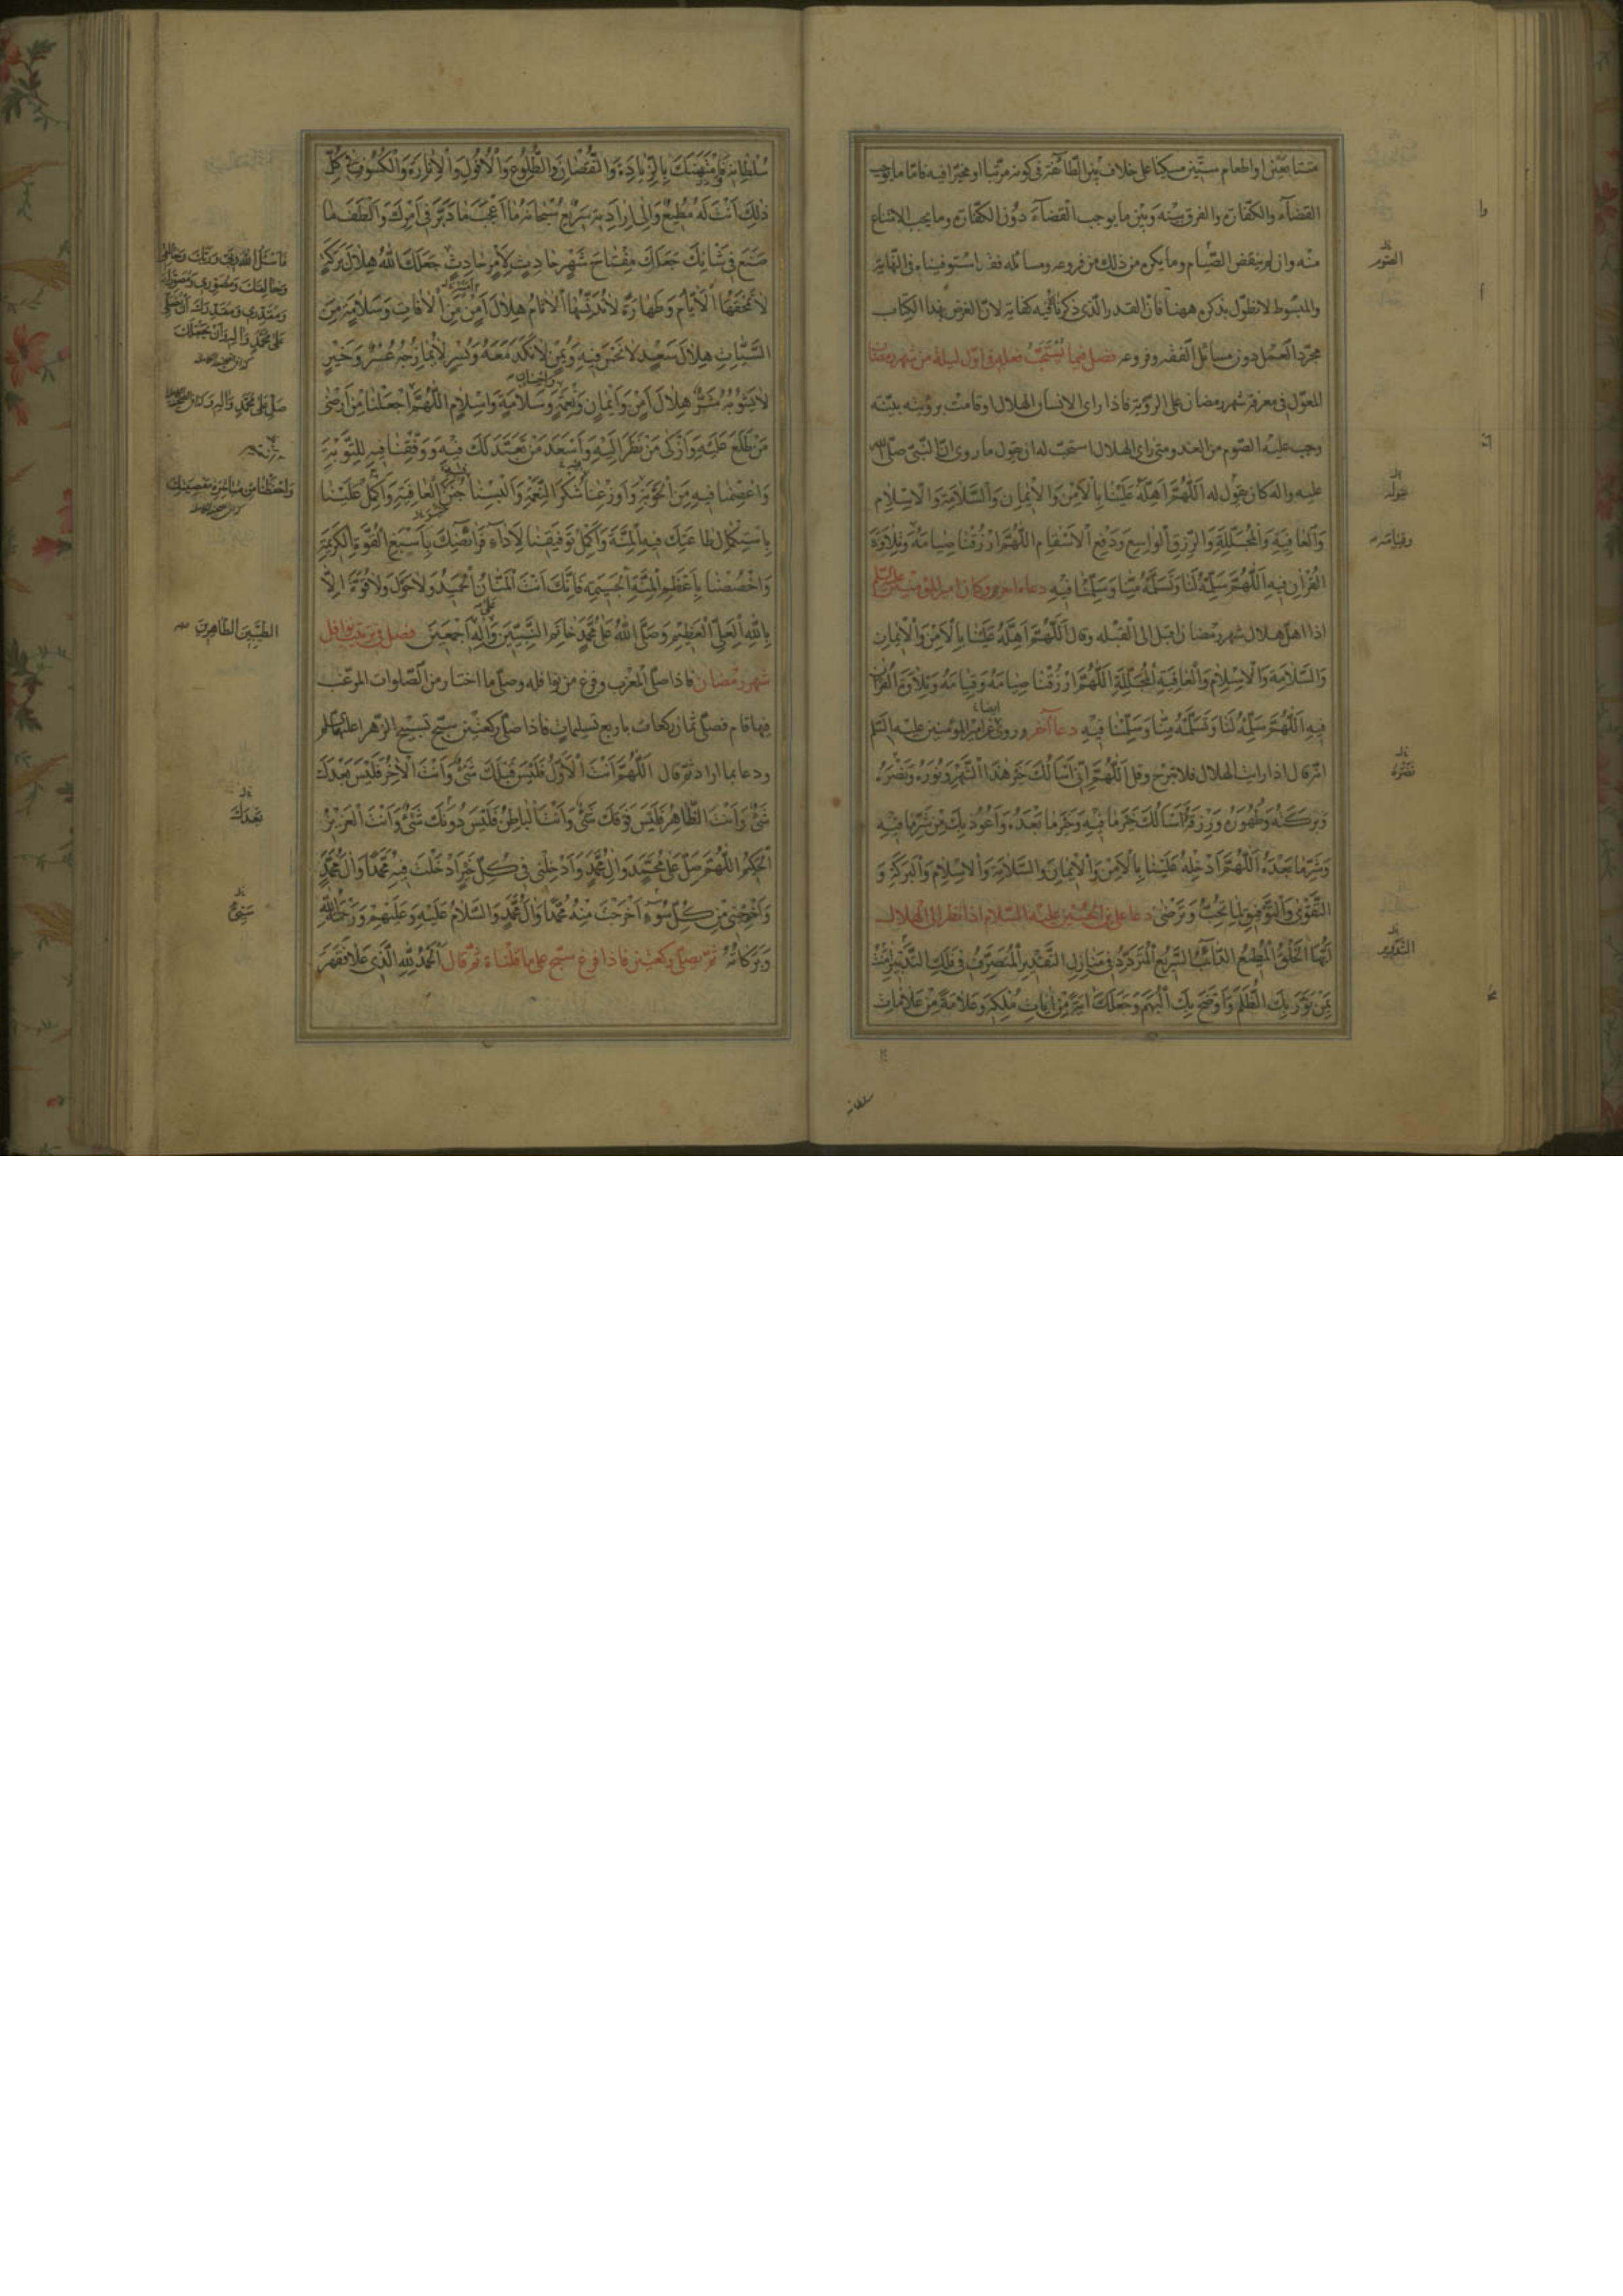 متتابعين او اطعام ستين مسكينا على خلاف بين الطائفة في كونه مرتبا او مخيرا فيه فاما ما يوجب
القضآء والكفارة والفرق بينه وبين ما يوجب القضآء دون الكفارة وما يجب الامتناع
منه وان لم ينقض الصيام وما يكن من ذلك من فروعه ومسائله فقد استوفيناه في النهاية
والمبسوط لا نطول بذكره ههنا فان القدر الذي ذكرناه فيه كفاية لان الغرض بهذا الكتاب
مجرد العمل دون مسائل الفقه وفروعه فصل فيما يُستحب فعله في اول ليلة من شهر رمضان
المعول في معرفة شهر رمضان على الروية فاذا راى الانسان الهلال او قامت برؤيته بينة
وجب عليه الصوم من الغد ومتى راى الهلال استحب له ان يقول ما روى ان النبي صلى الله
عليه واله كان يقول له اَللّهُمَّ اَهِلَّهُ عَلَيْنا بِالْاَمْنِ وَالْايمانِ وَالسَّلامَةِ وَالْاِسْلامِ
وَالْعافِيَةِ الْمُجَلِّلَةِ وَالرِّزْقِ الْواسِعِ وَدَفْعِ الْاَسْقامِ اللّهُمَّ ارْزُقْنا صِيامَهُ وَتِلاوَةَ
الْقُرْانِ فيهِ اَللّهُمَّ سَلِّمْهُ لَنا وَتَسَلَّمْهُ مِنّا وَسَلِّمْنا فيهِ دعاء اخر وكان امير المومنين عليه السلم
اذا اهل هلال شهر رمضان اقبل الى القبله وقال اَللّهُمَّ اَهِلَّهُ عَلَيْنا بِالْاَمْنِ وَالْايمانِ
وَالسَّلامَةِ وَالْاِسْلامِ وَالْعافِيَةِ الْمُجَلِّلَةِ اَللّهُمَّ ارْزُقْنا صِيامَهُ وَقِيامَهُ وَتِلاوَةَ الْقُرْانِ
فيهِ اَللّهُمَّ سَلِّمْهُ لَنا وَتَسَلَّمْهُ مِنّا وَسَلِّمْنا فيهِ دعآ آخر وروي عن امير المومنين عليه السلم
ايضا
انه قال اذا رايت الهلال فلا تبرح وقل اَللّهُمَّ اِنّي اَسْاَلُكَ خَيْرَ هذَا الشَّهْرِ وَنُورَهُ وَنَصْرَهُ
وَبَرَكَتَهُ وَطَهُورَهُ وَرِزْقَهُ اَسْاَلُكَ خَيْرَ ما فيهِ وَخَيْرَ ما بَعْدَهُ وَاَعُوذُ بِكَ مِنْ شَرِّ ما فيهِ
وَشَرِّ ما بَعْدَهُ اَللّهُمَّ اَدْخِلْهُ عَلَيْنا بِالْاَمْنِ وَالْايمانِ وَالسَّلامَةِ وَالْاِسْلامِ وَالْبَرَكَةِ وَ
التَّقْوى وَالتَّوْفيقِ لِما تُحِبُّ وَتَرْضى دعاء علي بن الحسين عليه السلام اذا نظر الى الهلال
اَيُّهَا الْخَلْقُ الْمُطيعُ الدّائِبُ السَّريعُ الْمُتَرَدِّدُ في مَنازِلِ التَّقْديرِ الْمُتَصَرِّفُ في فَلَكِ التَّدْبيرِ امَنْتُ
بِمَنْ نَوَّرَ بِكَ الظُّلَمَ وَاَوْضَحَ بِكَ الْبُهَمَ وَجَعَلَكَ ايَةً مِنْ اياتِ مُلْكِهِ وَعَلامَةً مِنْ عَلاماتِ
سلطانه
الصوم
يقوله
وقيامه
نصره
التدبير
سُلْطانِهِ وَامْتَهَنَكَ بِالزِّيادَةِ وَالنُّقْصانِ وَالطُّلُوعِ وَالْاُفُولِ وَالْاِنارَةِ وَالْكُسُوفِ في كُلِّ
ذلِكَ اَنْتَ لَهُ مُطيعٌ وَاِلى اِرادَتِهِ سَريعٌ سُبْحانَهُ ما اَعْجَبَ ما دَبَّرَ في اَمْرِكَ وَاَلْطَفَ ما
صَنَعَ في شَانِكَ جَعَلَكَ مِفْتاحَ شَهْرٍ حادِثٍ لِاَمْرٍ حادِثٍ جَعَلَكَ اللهُ هِلالَ بَرَكَةٍ
لا تَمْحَقُهَا الْاَيّامُ وَطَهارَةٍ لا تُدَنِّسُهَا الْاثامُ هِلالَ اَمْنٍ مِنَ الْافاتِ وَسَلامَةٍ مِنَ
السَّيِّئاتِ هِلالَ سَعْدٍ لا نَحْسَ فيهِ وَيُمْنٍ لا نَكَدَ مَعَهُ وَيُسْرٍ لا يُمازِجُهُ عُسْرٌ وَخَيْرٍ
لا يَشُوبُهُ شَرٌّ هِلالَ اَمْنٍ وَايمانٍ وَنِعْمَةٍ وَسَلامَةٍ وَاِسْلامٍ اَللّهُمَّ اجْعَلْنا مِنْ اَرْضى
واحسان
مَنْ طَلَعَ عَلَيْهِ وَاَزْكى مَنْ نَظَرَ اِلَيْهِ وَاَسْعَدَ مَنْ تَعَبَّدَ لَكَ فيهِ وَوَفِّقْنا فيهِ لِلتَّوْبَةِ
وَاعْصِمْنا فيهِ مِنَ الْحَوْبَةِ وَاَوْزِعْنا شُكْرَ النِّعْمَةِ وَاَلْبِسْنا جُنَنَ الْعافِيَةِ وَاَكْمِلْ عَلَيْنا
بِاسْتِكْمالِ طاعَتِكَ فيهِ الْمِنَّةَ وَاَكْمِلْ تَوْفيقَنا لِاَدآءِ فَرائِضِكَ بِاَسْبَغِ الْقُوَّةِ الْكَريمَةِ
وَاخْصُصْنا بِاَعْظَمِ الْمِنَّةِ الْجَسيمَةِ فَاِنَّكَ اَنْتَ الْمَنّانُ الْحَميدُ وَلا حَوْلَ وَلا قُوَّةَ اِلاّ
بِاللهِ الْعَلِيِّ الْعَظيمِ وَصَلَّى اللهُ عَلى مُحَمَّدٍ خاتَمِ النَّبِيّينَ وَالِهِ اَجْمَعينَ فصل في ترتيب نوافل
شهر رمضان فاذا صلى المغرب وفرغ من نوافله وصلى ما اختار من الصلوات المرغب
فيها قام فصلى ثمان ركعات باربع تسليمات فاذا صلى ركعتين سبح تسبيح الزهرا عليها السلم
ودعا بما اراد ثم قال اَللّهُمَّ اَنْتَ الْاَوَّلُ فَلَيْسَ قَبْلَكَ شَيْءٌ وَاَنْتَ الْاخِرُ فَلَيْسَ بَعْدَكَ
شَيْءٌ وَاَنْتَ الظّاهِرُ فَلَيْسَ فَوْقَكَ شَيْءٌ وَاَنْتَ الْباطِنُ فَلَيْسَ دُونَكَ شَيْءٌ وَاَنْتَ الْعَزيزُ
الْحَكيمُ اَللّهُمَّ صَلِّ عَلى مُحَمَّدٍ وَالِ مُحَمَّدٍ وَاَدْخِلْني في كُلِّ خَيْرٍ اَدْخَلْتَ فيهِ مُحَمَّدًا وَالَ مُحَمَّدٍ
وَاَخْرِجْني مِنْ كُلِّ سُوءٍ اَخْرَجْتَ مِنْهُ مُحَمَّدًا وَالَ مُحَمَّدٍ وَالسَّلامُ عَلَيْهِ وَعَلَيْهِمْ وَرَحْمَةُ اللهِ
وَبَرَكاتُهُ ثم يصلي ركعتين فاذا فرغ سبح على ما قلناه ثم قال اَلْحَمْدُ لِلّهِ الَّذي عَلا فَقَهَرَ
فَاَسْئَلُ اللهَ رَبّي وَرَبَّكَ وَخالِقي
وَخالِقَكَ وَمُصَوِّري وَمُصَوِّرَكَ
وَمُقَدِّري وَمُقَدِّرَكَ اَنْ يُصَلِّيَ
عَلى مُحَمَّدٍ وَالِهِ وَاَنْ يَجْعَلَكَ
صَلِّ عَلى مُحَمَّدٍ وَالِهِ
وَاحْفَظْنا مِنْ مُباشَرَةِ مَعْصِيَتِكَ
الطَّيِّبينَ الطّاهِرينَ
بَعْدَكَ